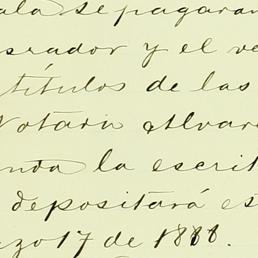 ala se pagaran
srador y el ve
títulos de las
Notario Alvar
enda la escrit
depositará es
zo 17 de 1888.